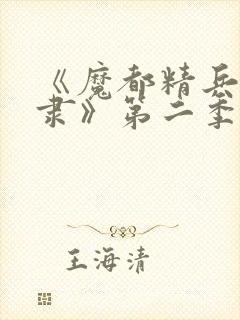 《魔都精兵
隶》第二季
王海清